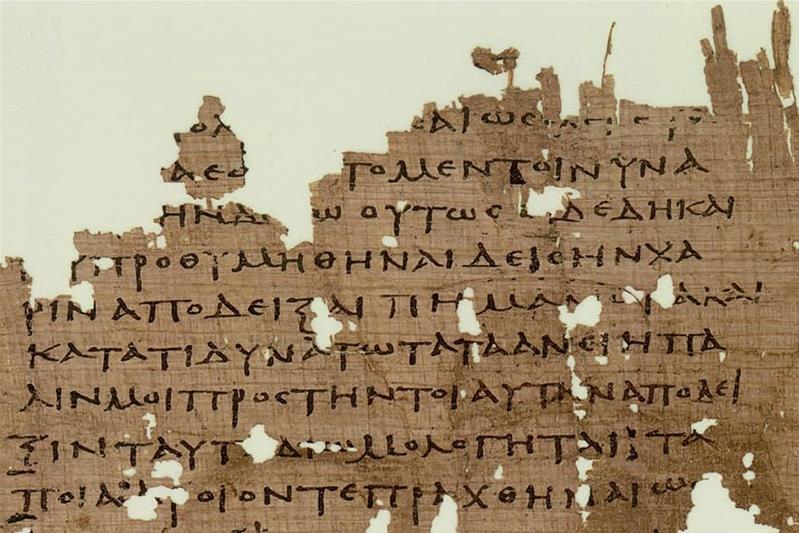 ΑΙΩϹ
ΤΟΜΕΝΤΟΙΝΥΝΑ
ΗΝΔ Ω ΟΥΤΩϹ ΔΕΔΗΚΑΙ
Υ ΠΡΟΘΥΜΗΘΗΝΑΙΔΕΙϹΗΝΧΑ
ΡΙΝΑΠΟΔΕΙΞΑΙΠΗΜΑΛ ΚΑΙ
ΚΑΤΑΤΙΔΥΝΑΤΩΤΑΤΑΑΝΕΙΗΠΑ
ΛΙΝΜΟΙΠΡΟϹΤΗΝΤΟΙΑΥΤΗΝΑΠΟΔΕΙ
ΞΙΝΤΑΥΤ ΔΙΟΜΟΛΟΓΗΤΑΙ ΤΑ
ΠΟΙΑ ΡΟΙΟΝΤΕΠΡΑΧΘΗΝΑΙΩϹ